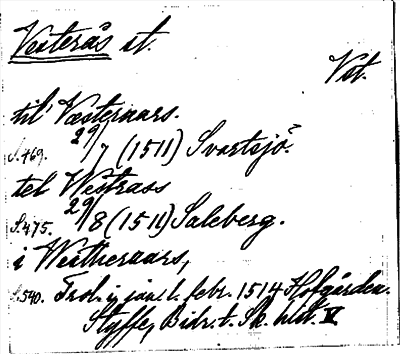 Vesterås st.
Vst.
til' Vesternaars.
S.469. 29/7 (1511) Svartsjö.
tel Westrass
S.475. 29/8 (1511) Saleberg.
i Westhernaars,
S.540. Trol. i jan. l. febr. 1514 Hofgården.
Styffe, Bidr. t. Sk. hist. V